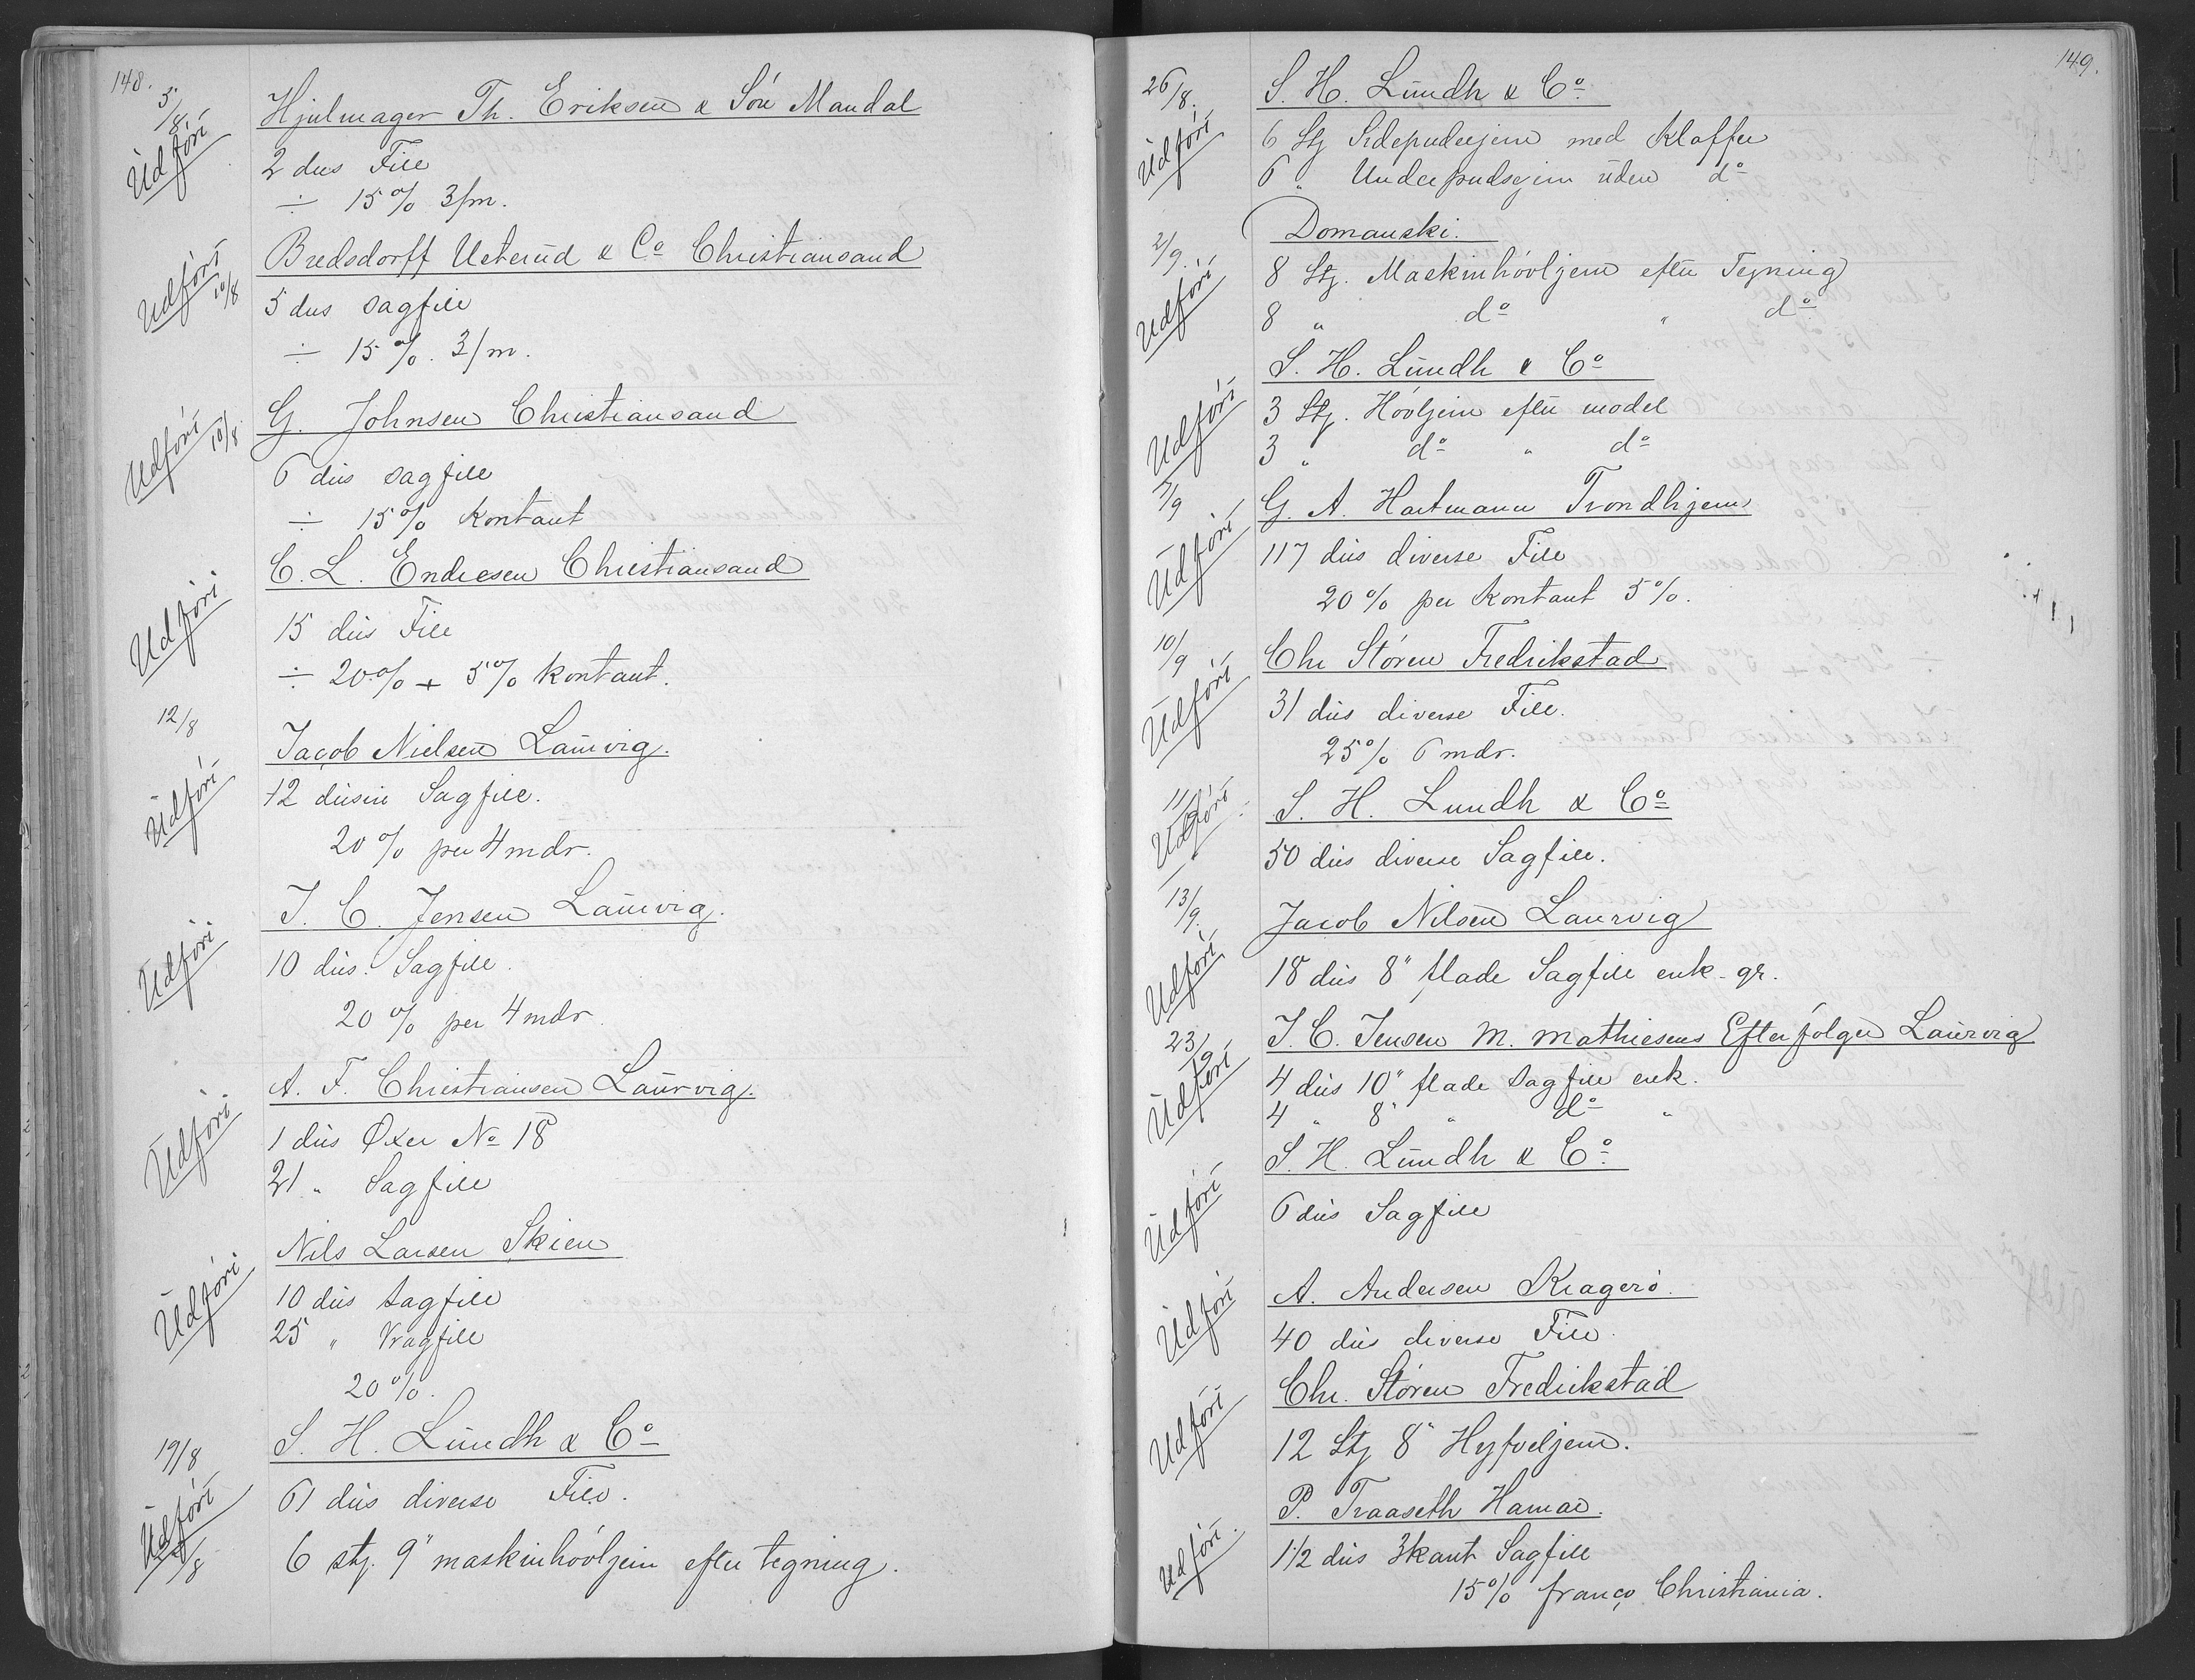 148.
5/8. Hjulmager Th. Eriksen & Sön Mandal
Udförí
2 dus File
÷ 15% 3/m.
Bredsdorff Ueterud & Co Christiansand
Udförí 10/8
5 dus sagfile
÷ 15%. 3/m.
G. Johnsen Christiansand
Udförí 10/8
6 dus sagfile
÷ 15% Kontant
C. L. Endresen Christiansand
Udförí
15 dus File
÷ 20% + 5% kontant.
12/8
Jacob Nielsen Laurvig.
Udförí
12 dusin Sagfile.
20% per 4 mdr.
J. C. Jensen Laurvig.
Udförí
10 dus. Sagfile.
20% per 4 mdr
A. F. Christiansen Laurvig.
Udförí
1 dus Øxer No 18
21 " Sagfile
Nils Larsen Skien
Udförí
10 dus sagfile
25 " Vragfile
20%.
19/8 S. H. Lundh & Co
Udförí
61 dus diverse File.
6 stj. 9" maskinhövljern efter tegning.
149.
26/8. S. H. Lundh & Co
Udförí
6 Stj Sidepudsejern med Klaffer
6 " Underpudsejern uden do
2/9. Domanski.
Udförí
8 Stj. Maskinhövljern efter Tegning
8 " do " do
S. H. Lundh & Co
Udförí
3 Stj. Hövljern efter model
3 " do " do
5/9 G. A. Hartmann Trondhjem
Udförí
117 dus diverse File
20% per Kontant 5%.
10/9 Chr Stören Fredrikstad
Udförí
31 dus diverse File.
25% 6 mdr.
11/9 S. H. Lundh & Co
Udförí
50 dus diverse Sagfile.
13/9. Jacob Nilsen Laurvig
Udförí
18 dus 8" flade Sagfile enk-gr.
23/9 J. C. Jensen M. Mathiesens Efterfölger Laurvig
Udförí
4 dus 10" flade sagfile enk.
4 " 8" " do "
S. H. Lundh & Co
Udförí
6 dus Sagfile
A. Andersen Kragerö.
Udförí
40 dus diverse File.
Chr. Stören Fredrikstad
Udförí
12 Stj 8" Hyfveljern.
P. Traaseth Hamar.
Udförí.
1 1/2 dus 3kant Sagfile
15% franco Christiania.